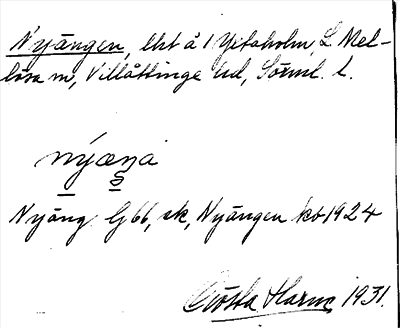 Nyängen, lht å 1 Yxtaholm, L Mel-
lösa sn, Villåttinge hd, Sörml. l.
nýæŋa
Nyäng Gj 66, sk, Nyängen kb 1924
Gösta Harne 1931.